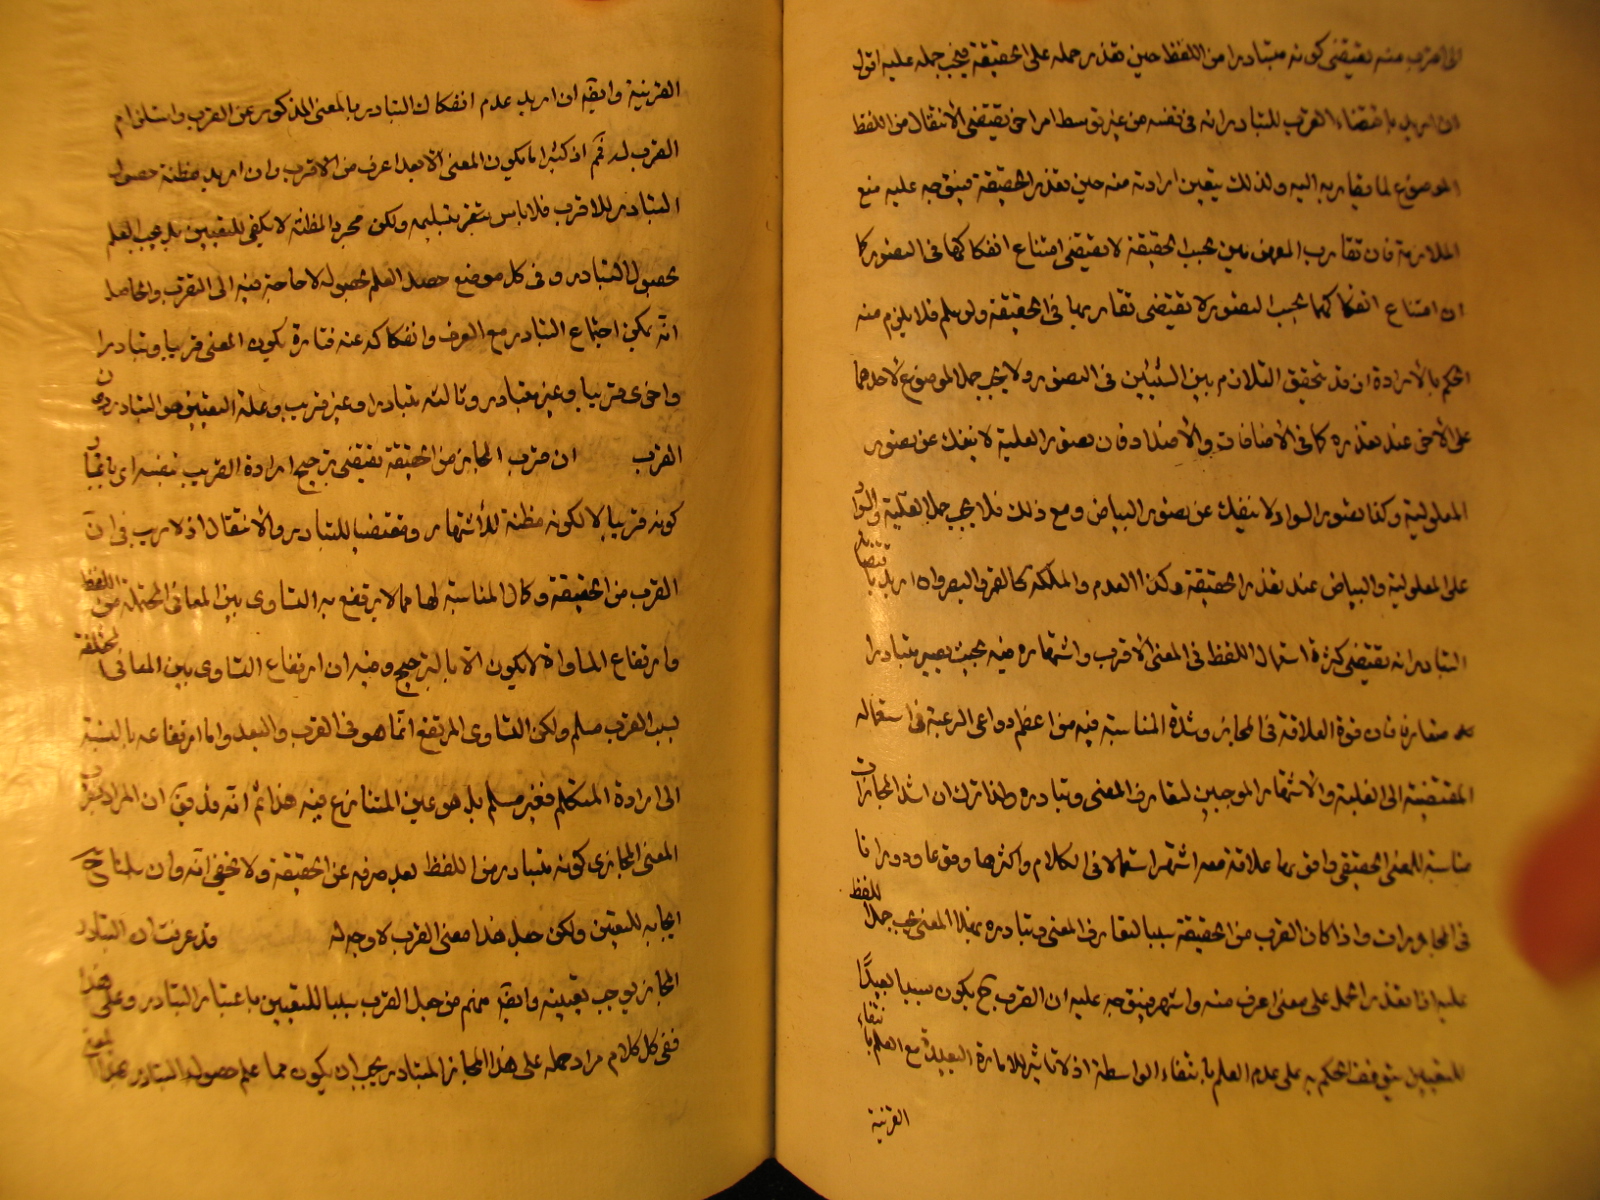 الى اقرب منه يقتضى كونه متبادرا من اللفظ حين تعذر حمله على الحقيقة فيجب حمله عليه اقول
ان اريد باقتضاء القرب للتبادر انه فى نفسه من غير توسط امر اخر يقتضى الانتقال من اللفظ
الموضوع لما يقاربه اليه ولذلك يتعين ارادته منه حين تعذر الحقيقة فيتوجه عليه منع
الملازمة فان تقارب المفهومين بحسب الحقيقة لا يقتضى امتناع انفكاكهما فى التصور كما
ان امتناع انفكاكهما بحسب التصور لا يقتضى تقاربهما فى الحقيقة ولو سلم فلا يلزم منه
الحكم بالارادة اذ قد يتحقق التلازم بين الشيئين فى التصور ولا يجب حمل الموضوع لاحدهما
على الاخر عند تعذره كما فى الاضافات والاضداد فان تصور العلية لا ينفك عن تصور
المعلولية وكذا تصور السواد لا ينفك عن تصور البياض ومع ذلك فلا يجب حمل العلية والسواد
على المعلولية والبياض عند تعذر الحقيقة وكذا العدم والملكة كالعمى والبصر وان اريد باقتضاء
التبادر انه يقتضى كثرة استعمال اللفظ فى المعنى الاقرب واشتهاره فيه بحيث يصير متبادرا
متعارفا فان قوة العلاقة فى المجاز وشدة المناسبة فيه من اعظم دواعى الرغبة فى استعماله
المقتضية الى الغلبة والاشتهار الموجبين لتعارف المعنى وتبادره ولذا ترى ان اشد المجازات
مناسبة للمعنى الحقيقى واقويها علاقة معه اشهر استعمالا فى الكلام واكثرها وقوعا ودورانا
فى المحاورات واذا كان القرب من الحقيقة سببا لتعارف المعنى وتبادره بهذا المعنى يجب حمل اللفظ
عليه اذا تعذر الحمل على معنى اعرف منه واشهر فيتوجه عليه ان القرب ح يكون سببا بعيدا
للتعيين يتوقف الحكم به على عدم العلم بانتفاء الواسطة اذ لا تاثير للامارة البعيدة مع العلم بانتفاء
القرينة
القرينة وايضا ان اريد عدم انفكاك التبادر بالمعنى المذكور عن القرب واستلزام
القرب له فمم اذ كثيرا ما يكون المعنى الابعد اعرف من الاقرب وان اريد مظنة حصول
التبادر للاقرب فلا باس بتسليمه ولكن مجرد المظنة لا يكفى للتعيين بل يجب العلم
بحصول التبادر وفى كل موضع حصل العلم بحصوله لا حاجة فيه الى القرب والحاصل
انه يمكن اجتماع التبادر مع القرب وانفكاكه عنه فتارة يكون المعنى قريبا ومتبادرا
واخرى قريبا وغير متبادر وثالثة متبادرا وغير قريب وعلة التعيين هو التبادر دون
القرب ان قرب المجاز من الحقيقة يقتضى ترجيح ارادة القريب بنفسه اى باعتبار
كونه قريبا لا لكونه مظنة للاشتهار ومقتضيا للتبادر والانتقال اذ لا ريب فى ان
القرب من الحقيقة وكمال المناسبة لها مما لا يرتفع به التساوى بين المعانى المحتملة من اللفظ
وارتفاع المساواة لا يكون الا بالترجيح وفيه ان ارتفاع التساوى بين المعانى المختلفة
بسبب القرب مسلم ولكن التساوى المرتفع انما هو فى القرب والبعد واما ارتفاعه بالنسبة
الى ارادة المتكلم فغير مسلم بل هو عين المتنازع فيه هذا ثم انه قد يق ان المراد بقرب
المعنى المجازى كونه متبادر من اللفظ بعد صرفه عن الحقيقة ولا يخفى انه وان سلمنا ح
ايجابه للتعيين ولكن جعل هذا معنى القرب لا وجه له قد عرفت ان التبادر
المجاز يوجب تعيينه وايضا منهم من جعل القرب سببا للتعيين باعتبار التبادر وعلى هذا
ففى كل كلام مراد حمله على هذا المجاز المتبادر يجب ان يكون مما علم حصول التبادر بهذا المعنى